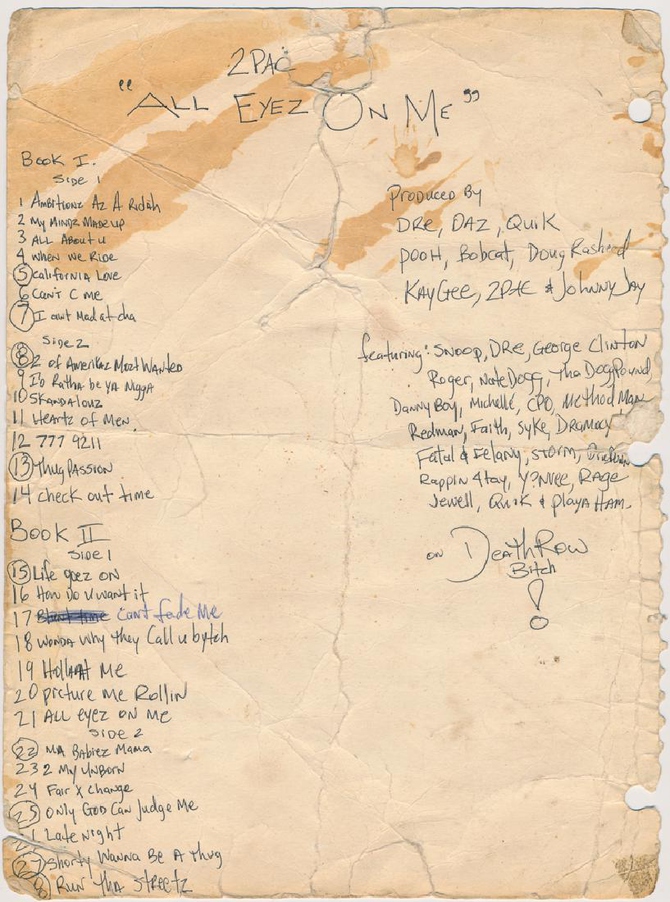 2PAC
"ALL EYEZ ON ME"
Book I.
SIDE 1
1 Ambitionz Az A Ridah
2 My MINDZ MADE UP
3 ALL About u
4 when we Ride
5 California Love
6 Can't C me
7 I aint Mad at cha
Side 2
8 2 of Amerikaz Most Wanted
9 I'd Ratha be YA Nigga
10 SKANDALOUZ
11 Heartz of Men
12 777 9211
13 Thug PASSION
14 check out time
Book II
SIDE 1
15 Life goez ON
16 How do u want it
17 Can't fade Me
18 WONDA Why they Call u bytch
19 Holla At Me
20 picture me Rollin
21 ALL eyez ON Me
SIDE 2
22 MA Babiez Mama
23 2 My UNBORN
24 Fair X change
25 Only GOD Can Judge Me
Late night
27 Shorty Wanna Be A Thug
Run Tha Streetz
Produced By
DRe, DAZ, Quik
POOH, Bobcat, Doug Rasheed
KAYGee, 2PAC & Johnny Jay
featuring: SNOOP, DRE, George Clinton
Roger, Nate Dogg, Tha Dogg Pound
Danny Boy, Michelle, CPO, Method Man
Redman, Faith, Syke, DRAMACY
Fatal & Felany, STORM,
Rappin 4tay, Y?NVEE, RAGE
Jewell, QuiK & Playa HAM.
ON Death Row
Bitch
!